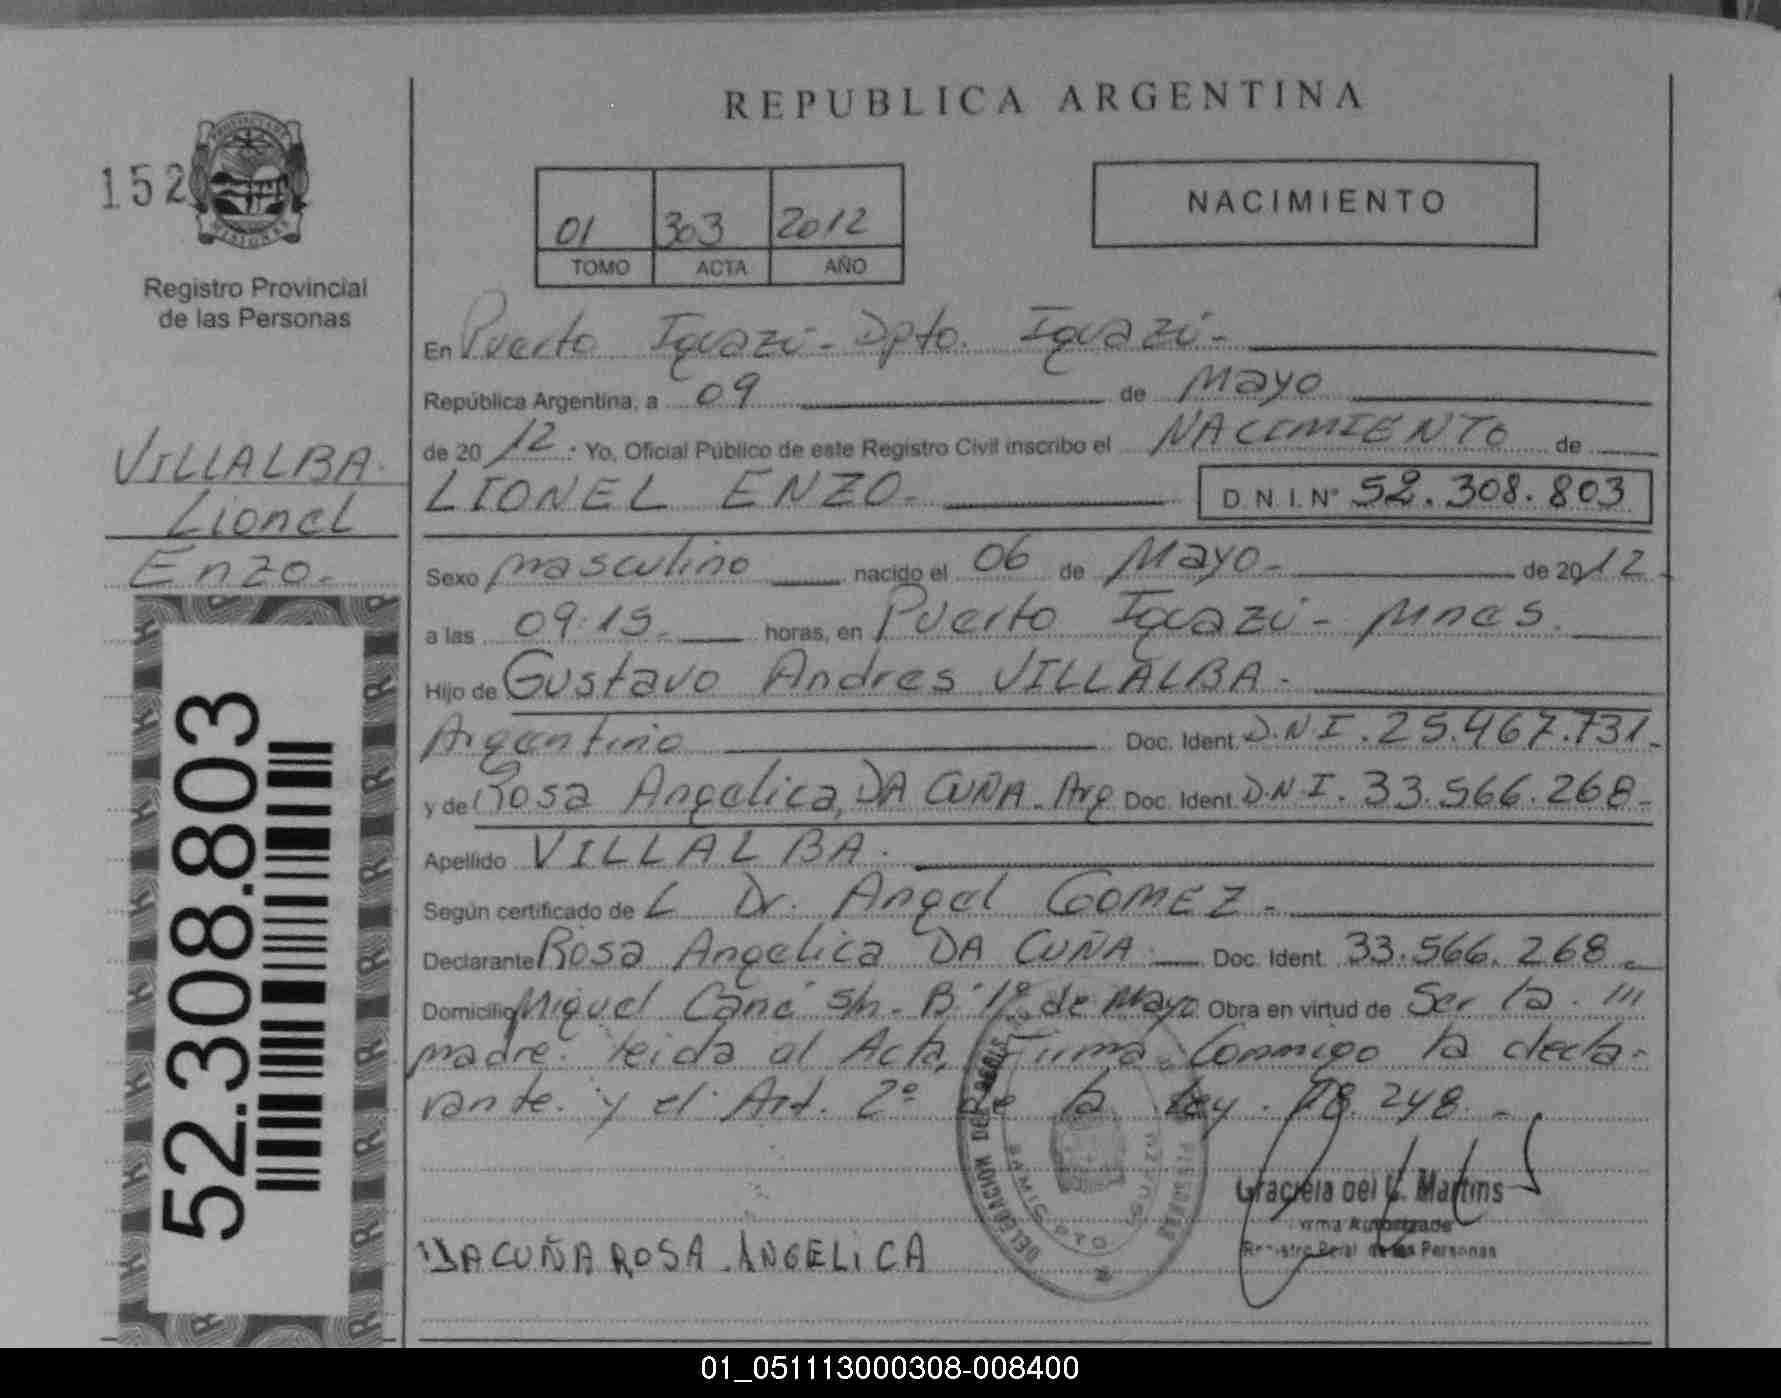 REPUBLICA ARGENTINA
152
PROVINCIA DE
MISIONES
Registro Provincial
de las Personas
01 303 2012
TOMO ACTA AÑO
NACIMIENTO
VILLALBA.
Lionel
Enzo.-
52.308.803
En Puerto Iguazú - Dpto. Iguazú -
República Argentina, a 09 de Mayo
de 20 12 . Yo, Oficial Público de este Registro Civil inscribo el NACIMIENTO de
LIONEL ENZO.- D.N.I. Nº 52.308.803
Sexo masculino nacido el 06 de Mayo.- de 2012.-
a las 09:15.- horas, en Puerto Iguazú - Mnes.
Hijo de Gustavo Andres VILLALBA.-
Argentino Doc. Ident. D.N.I. 25.467.731.-
y de Rosa Angelica, DA CUÑA. Arg Doc. Ident. D.N.I. 33.566.268.-
Apellido VILLALBA.
Según certificado de L Dr. Angel GOMEZ.-
Declarante Rosa Angelica DA CUÑA.- Doc. Ident. 33.566.268.-
Domicilio Miguel Cané s/n. B: 1º de Mayo Obra en virtud de Ser la
madre. leida al Acta, Firma Conmigo la decla-
rante. y el Art. 2º de la Ley. 18.248.-
DELEGACION DE
Graciela del C. Martins
Firma Autorizada
Registro Pcial de las Personas
DACUÑA ROSA ANGELICA
01_051113000308-008400